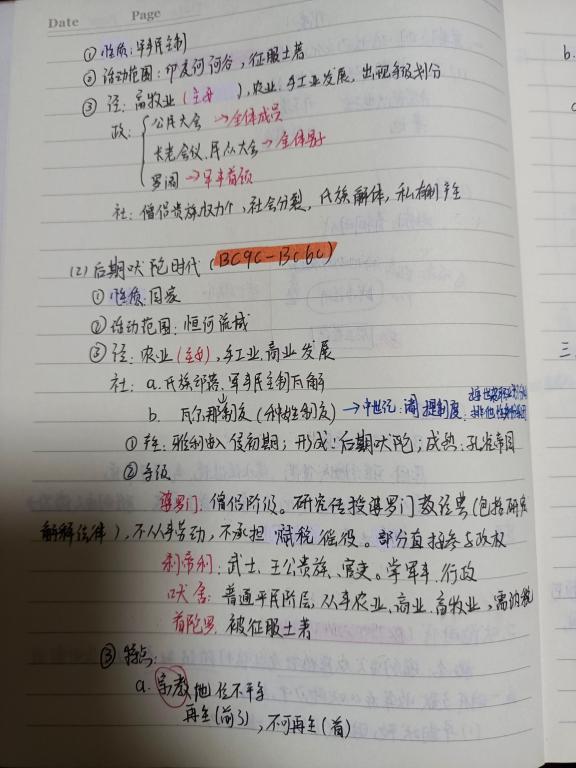 Date Page
①性质：军事民主制
②活动范围：印度河河谷，征服土著
③经：畜牧业（主要），农业、手工业发展，出现等级划分
政：公民大会→全体成员
长老会议、民众大会→全体男子
罗阇→军事首领
社：僧侣贵族权力个，社会分裂，氏族解体，私有制产生
(2)后期吠陀时代（BC9C-BC6C）
①性质：国家
②活动范围：恒河流域
③经：农业（主要），手工业、商业发展
社：a.氏族部落、军事民主制瓦解
b. 瓦尔那制度（种姓制度）→中世纪：阇提制度：
①产生：雅利安人入侵初期；形成：后期吠陀；成熟：孔雀帝国
②等级
婆罗门：僧侣阶级。研究传授婆罗门教经典（包括研究
解释法律），不从事劳动，不承担赋税徭役。部分直接参与政权
刹帝利：武士、王公贵族、官吏。掌军事、行政
吠舍：普通平民阶层，从事农业、商业、畜牧业，需纳税
首陀罗：被征服土著
③特点：
a.宗教地位不平等
再生（前3），不可再生（首）
b.
三、